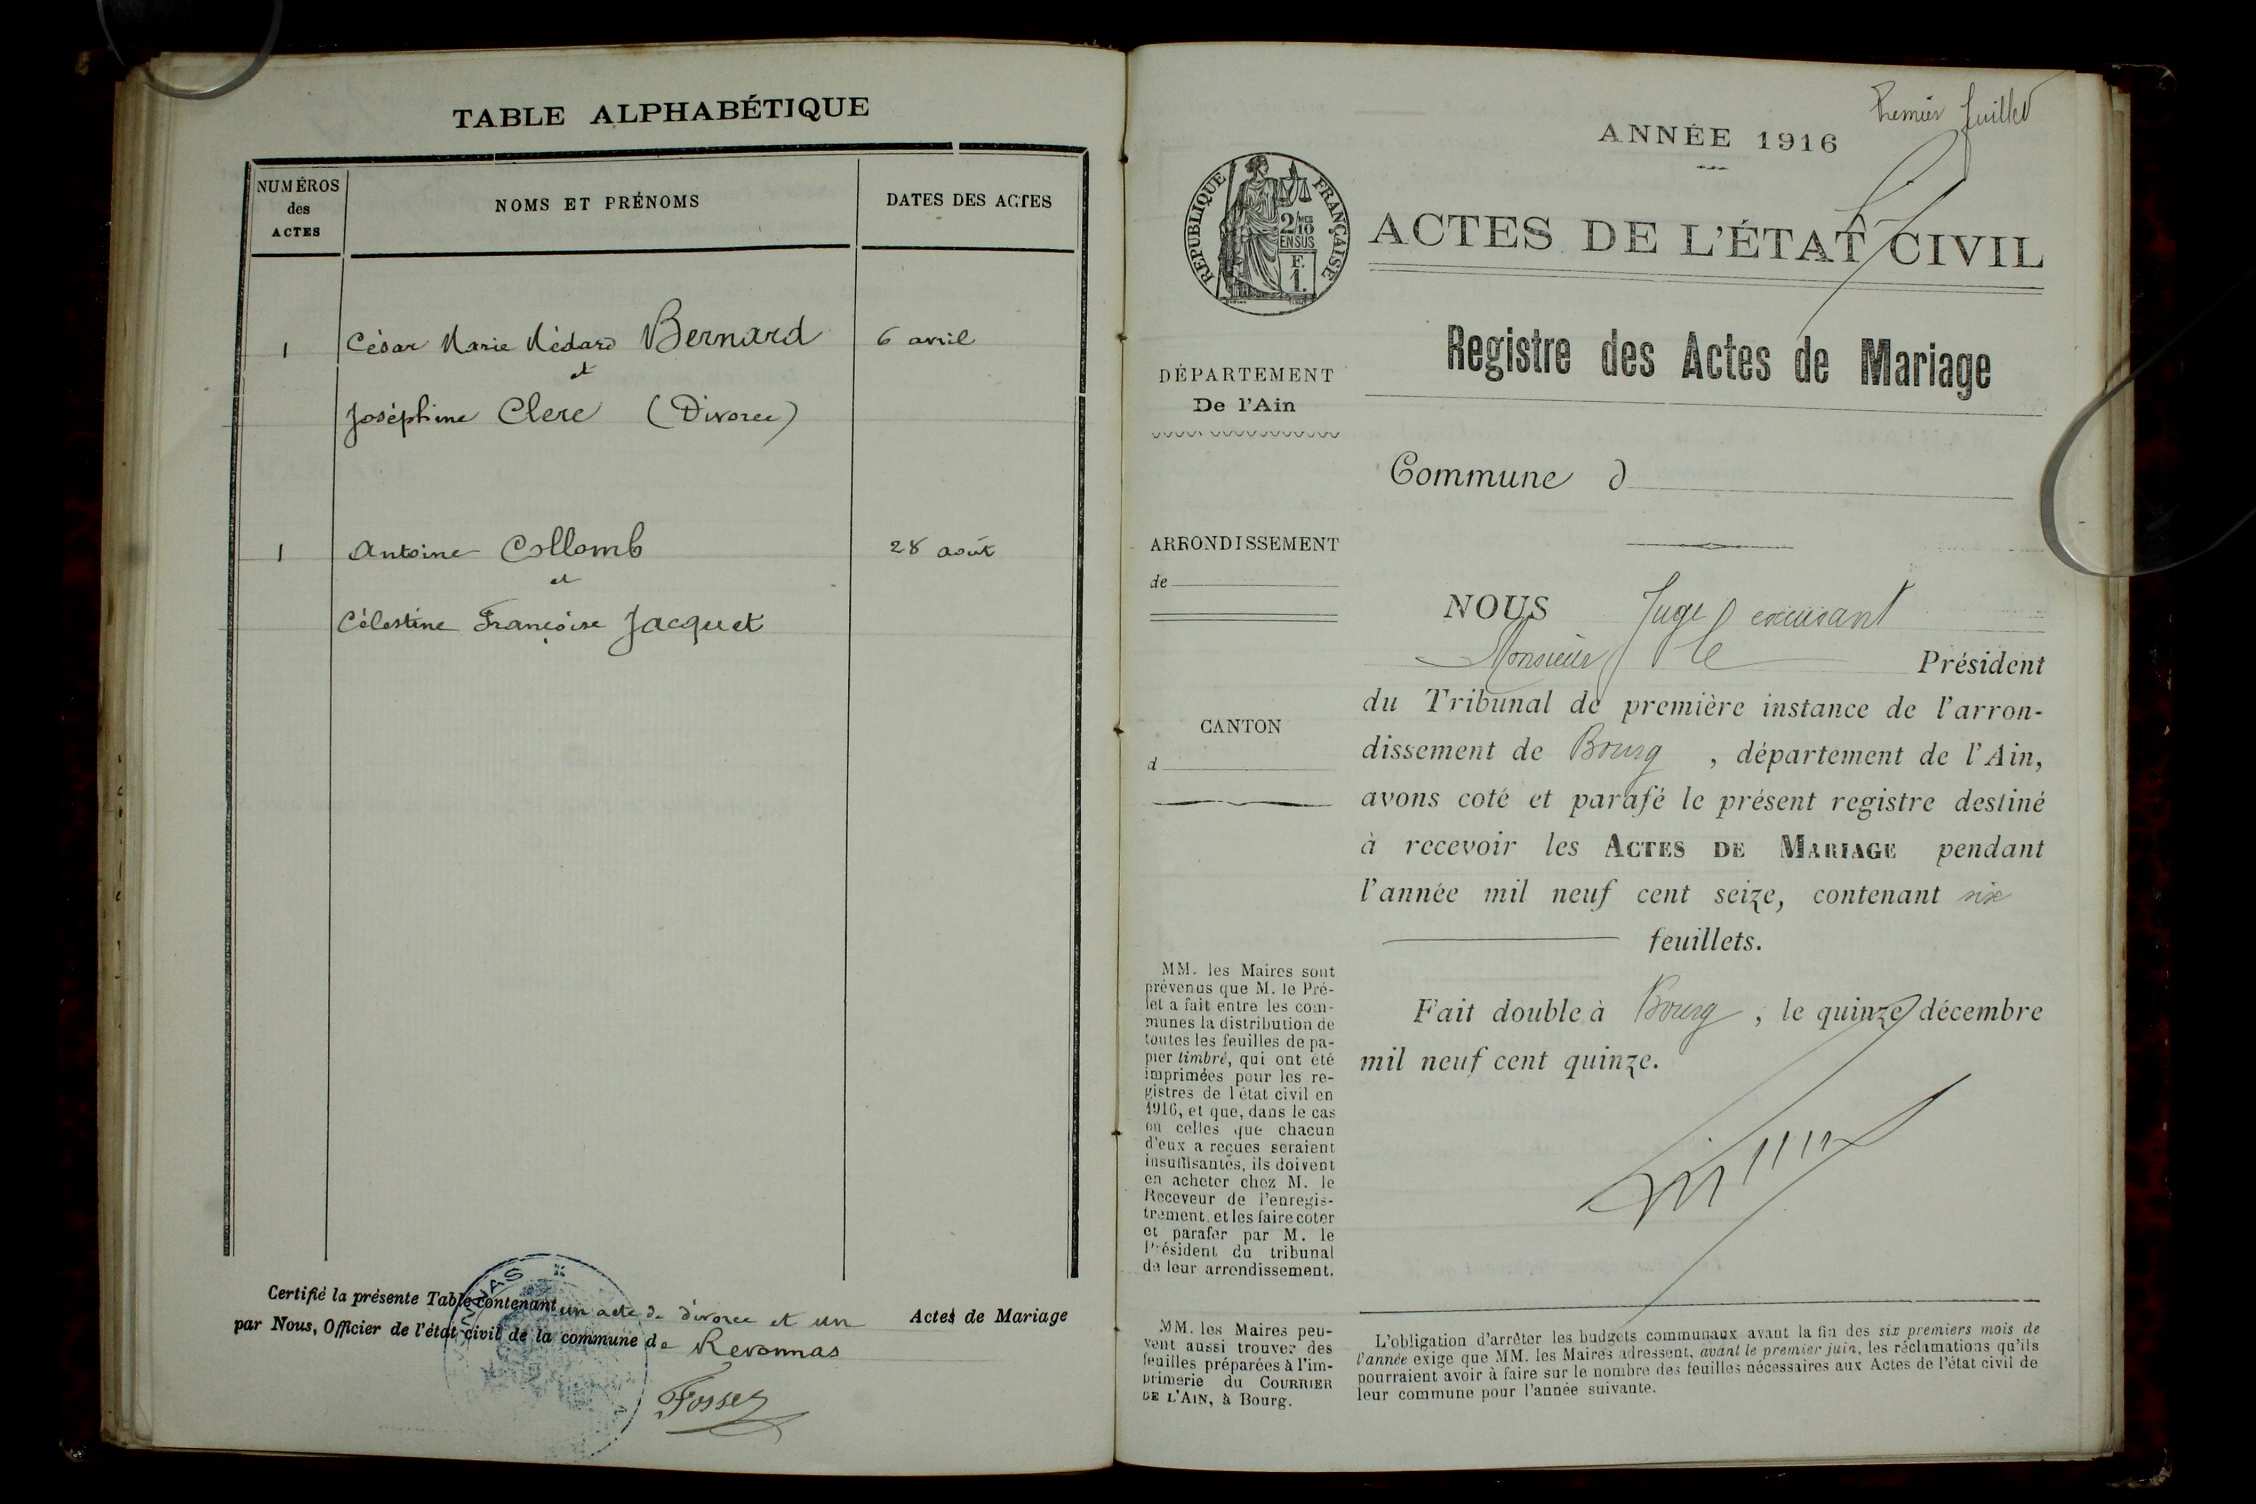 TABLE ALPHABÉTIQUE
NUMÉROS
des
ACTES
NOMS ET PRÉNOMS
DATES DES ACTES
1 César Marie Médard Bernard 6 avril
et
Joséphine Clerc (Divorce)
1 Antoine Collomb 28 août
et
Célestine Françoise Jacquet
Certifié la présente Table contenant un acte de divorce et un Actes de Mariage
par Nous, Officier de l'état civil de la commune de Revonnas
Premier feuillet
ANNÉE 1916
RÉPUBLIQUE FRANÇAISE
2/10
EN SUS
F.
1.
ACTES DE L'ÉTAT CIVIL
Registre des Actes de Mariage
DÉPARTEMENT
De l'Ain
Commune d
ARRONDISSEMENT
de
CANTON
d
NOUS Juge excusant
Monsieur le Président
du Tribunal de première instance de l'arron-
dissement de Bourg , département de l'Ain,
avons coté et parafé le présent registre destiné
à recevoir les ACTES DE MARIAGE pendant
l'année mil neuf cent seize, contenant six
feuillets.
Fait double à Bourg , le quinze décembre
mil neuf cent quinze.
MM. les Maires sont
prévenus que M. le Pré-
fet a fait entre les com-
munes la distribution de
toutes les feuilles de pa-
pier timbré, qui ont été
imprimées pour les re-
gistres de l'état civil en
1916, et que, dans le cas
où celles que chacun
d'eux a reçues seraient
insuffisantes, ils doivent
en acheter chez M. le
Receveur de l'enregis-
trement, et les faire coter
et parafer par M. le
Président du tribunal
de leur arrondissement.
MM. les Maires peu-
vent aussi trouver des
feuilles préparées à l'im-
primerie du COURRIER
DE L'AIN, à Bourg.
L'obligation d'arrêter les budgets communaux avant la fin des six premiers mois de
l'année exige que MM. les Maires adressent, avant le premier juin, les réclamations qu'ils
pourraient avoir à faire sur le nombre des feuilles nécessaires aux Actes de l'état civil de
leur commune pour l'année suivante.